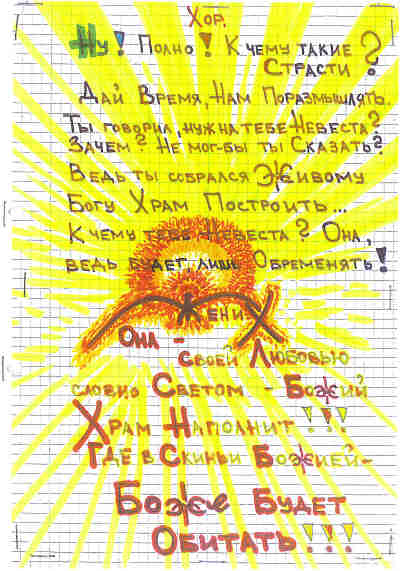 Хор.
Ну! Полно! К чему такие
Страсти?
Дай Время, Нам Поразмышлять.
Ты говорил, нужна тебе Невеста?
Зачем? Не мог-бы ты Сказать?
Ведь ты собрался Живому
Богу Храм Построить...
К чему тебе Невеста? Она,
ведь будет, лишь Обременять!
Жених
Она -
своей Любовью
словно Светом - Божий
Храм Наполнит!!!
Где в Скиньи Божией-
Боже Будет
Обитать!!!